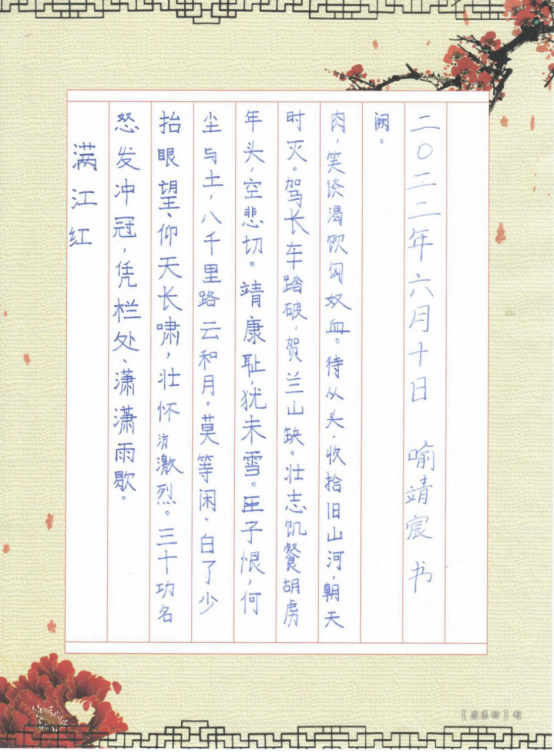 满江红
怒发冲冠，凭栏处、潇潇雨歇。
抬眼望、仰天长啸，壮怀激烈。三十功名
尘与土，八千里路云和月。莫等闲、白了少
年头，空悲切。靖康耻，犹未雪。臣子恨，何
时灭。驾长车踏破，贺兰山缺。壮志饥餐胡虏
肉，笑谈渴饮匈奴血。待从头、收拾旧山河，朝天
阙。
二〇二二年六月十日 喻靖宸书